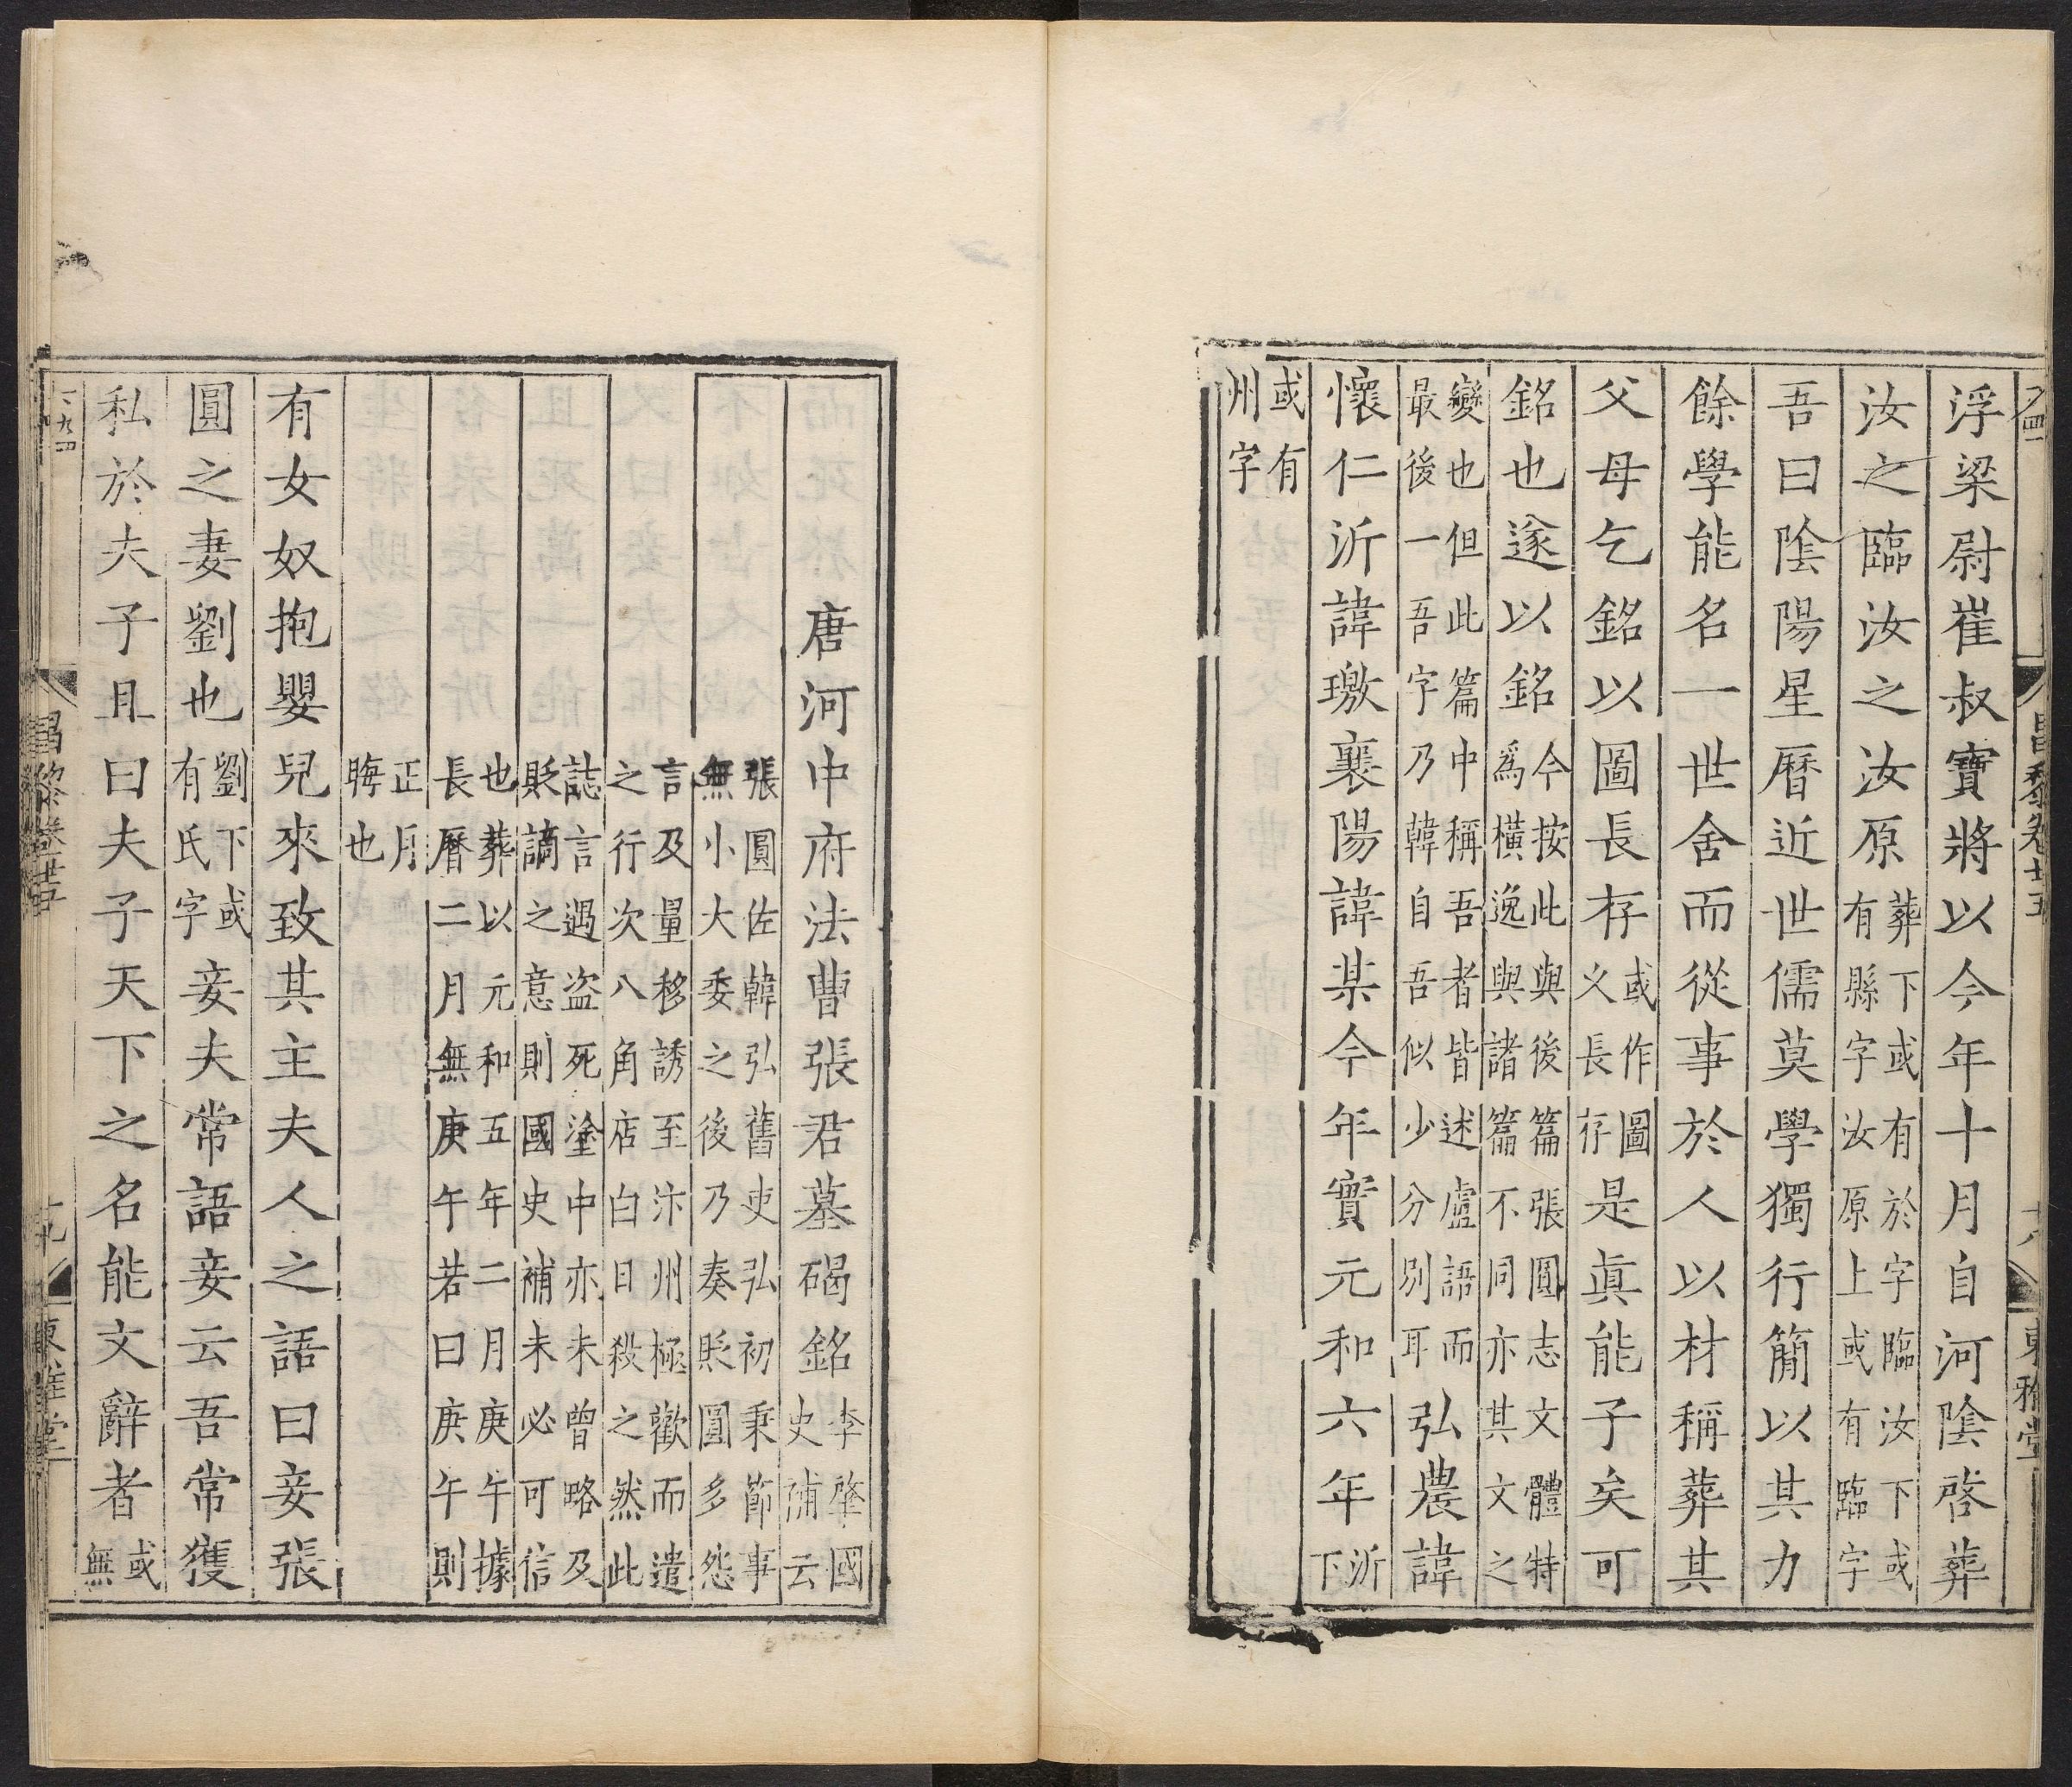 浮梁尉崔叔寶將以今年十月自河陰啓葬
汝之臨汝之汝原葬下或有於字臨汝下或有縣字汝原上或有臨字
吾曰陰陽星曆近世儒莫學獨行簡以其力
餘學能名一世舍而從事於人以材稱葬其
父母乞銘以圖長存或作圖乂長存是眞能子矣可
銘也遂以銘今按此與後篇張圓志文體特爲橫逸與諸篇不同亦其文之
變也但此篇中稱吾者皆述盧語而最後一吾字乃韓自吾似少分別耳弘農諱
懷仁沂諱璬襄陽諱某今年實元和六年沂下
或有州字
昌黎卷廿五
十八
東雅堂
唐河中府法曹張君墓碣銘李肇國史補云
張圓佐韓弘舊吏弘初秉節事無小大委之後乃奏貶圓多怨
言及量移誘至汴州極歡而遣之行次八角店白日殺之然此
誌言遇盜死塗中亦未曾略及貶謫之意則國史補未必可信
也葬以元和五年二月庚午據長曆二月無庚午若曰庚午則
正月晦也
有女奴抱嬰兒來致其主夫人之語曰妾張
圓之妻劉也劉下或有氏字妾夫常語妾云吾常獲
私於夫子且曰夫子天下之名能文辭者或無
昌黎卷廿五
十九
東雅堂